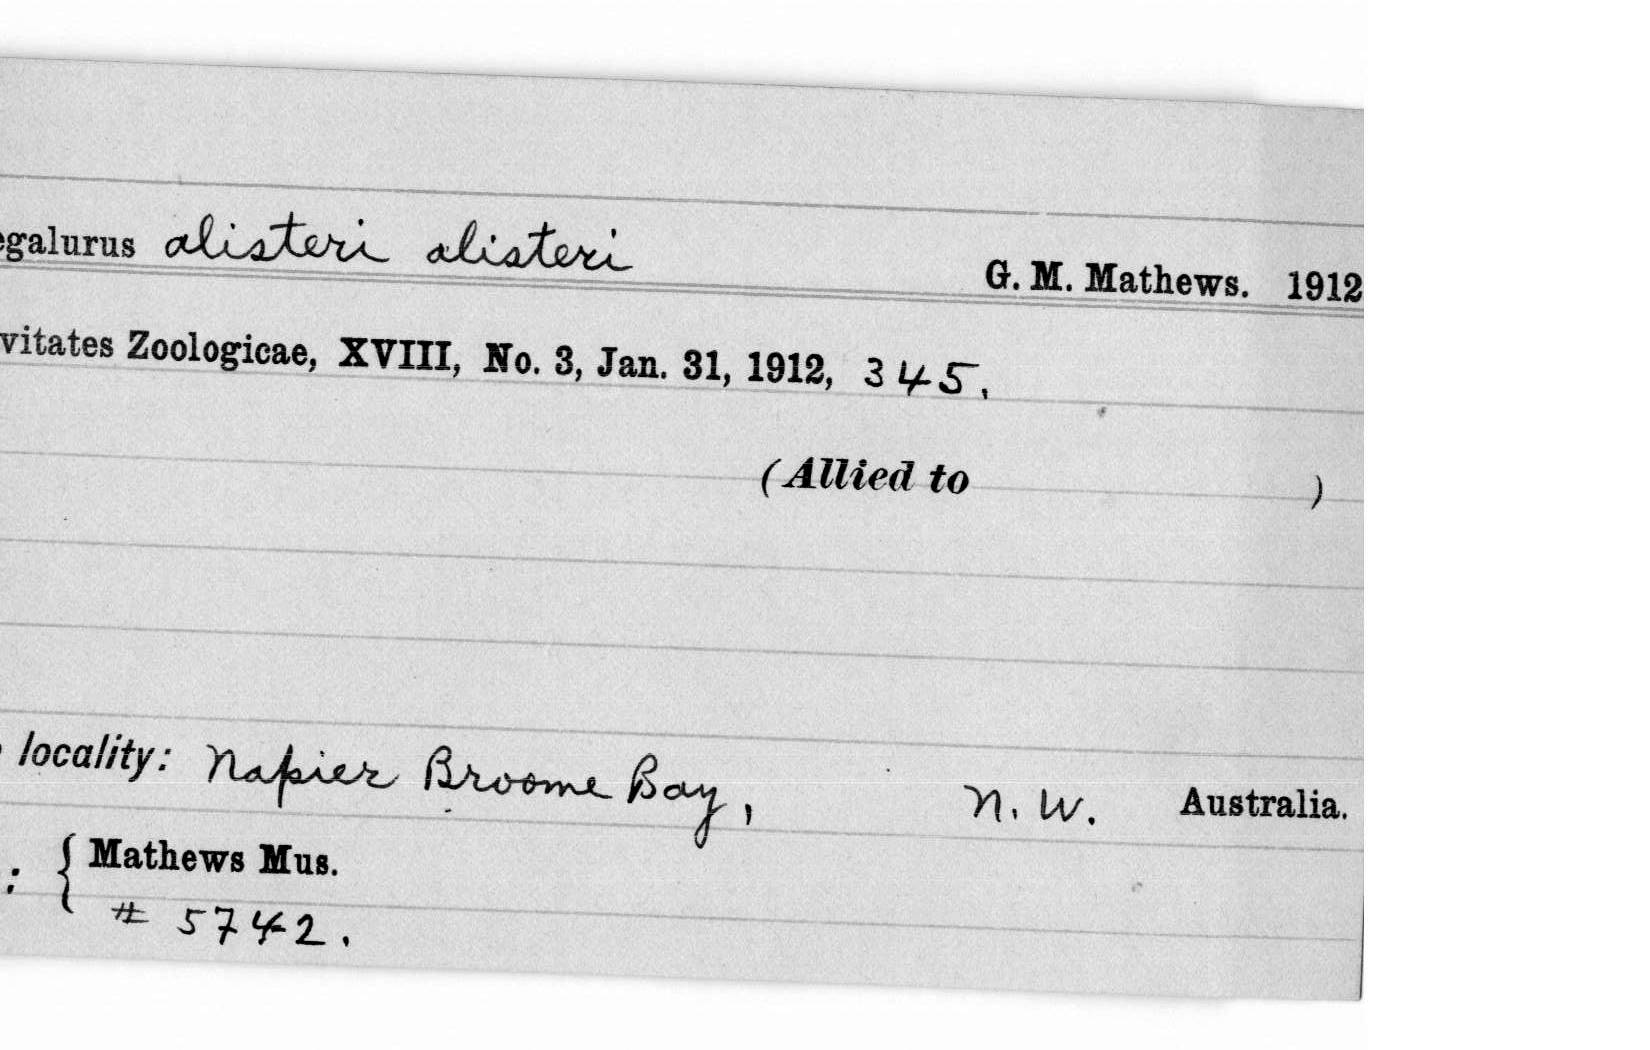 egalurus alisteri alisteri G. M. Mathews. 1912
vitates Zoologicae, XVIII, No. 3, Jan. 31, 1912, 345.
(Allied to )
locality: Napier Broome Bay, N. W. Australia.
: { Mathews Mus.
# 5742.